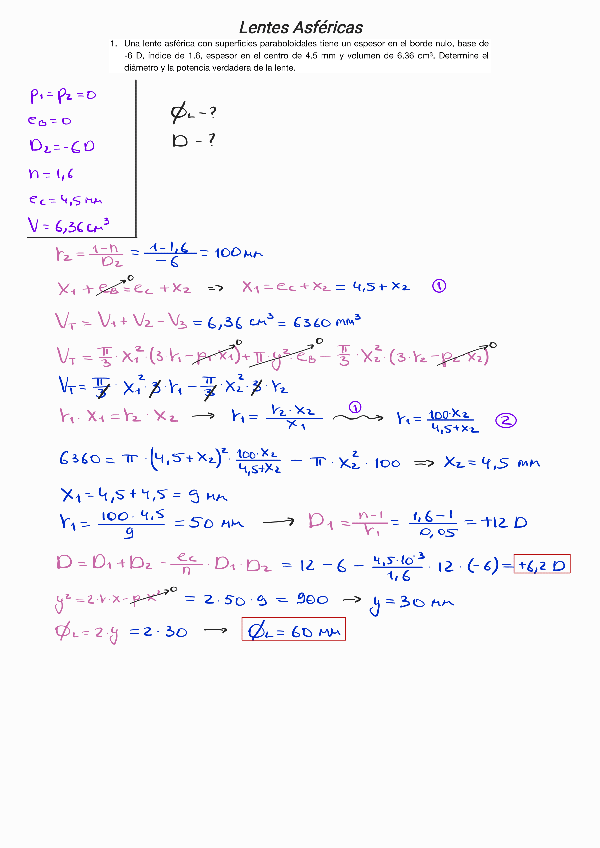 Lentes Asféricas
1. Una lente asférica con superficies paraboloidales tiene un espesor en el borde nulo, base de
-6 D, índice de 1,6, espesor en el centro de 4,5 mm y volumen de 6,36 cm³. Determine el
diámetro y la potencia verdadera de la lente.
p₁ = p₂ = 0
e_B = 0
D₂ = -6D
n = 1,6
e_c = 4,5 mm
V = 6,36 cm³
ϕ_L - ?
D - ?
r₂ = (1-n)/D₂ = (1-1,6)/-6 = 100 mm
x₁ + e_B = e_c + x₂ ⇒ x₁ = e_c + x₂ = 4,5 + x₂ ①
V_T = V₁ + V₂ - V₃ = 6,36 cm³ = 6360 mm³
V_T = π/3 · x₁² (3·r₁ - p₁·x₁) + π·y²·e_B - π/3 · x₂² · (3·r₂ - p₂·x₂)
V_T = π/3 · x₁² · 3 · r₁ - π/3 · x₂² · 3 · r₂
r₁ · x₁ = r₂ · x₂ → r₁ = (r₂·x₂)/x₁ ① → r₁ = (100·x₂)/(4,5+x₂) ②
6360 = π · (4,5 + x₂)² · (100·x₂)/(4,5+x₂) - π · x₂² · 100 ⇒ x₂ = 4,5 mm
x₁ = 4,5 + 4,5 = 9 mm
r₁ = (100 · 4,5)/9 = 50 mm → D₁ = (n-1)/r₁ = (1,6-1)/0,05 = +12 D
D = D₁ + D₂ - e_c/n · D₁ · D₂ = 12 - 6 - (4,5·10⁻³)/1,6 · 12 · (-6) = +6,2 D
y² = 2·r·x - p·x² = 2 · 50 · 9 = 900 → y = 30 mm
ϕ_L = 2·y = 2 · 30 → ϕ_L = 60 mm